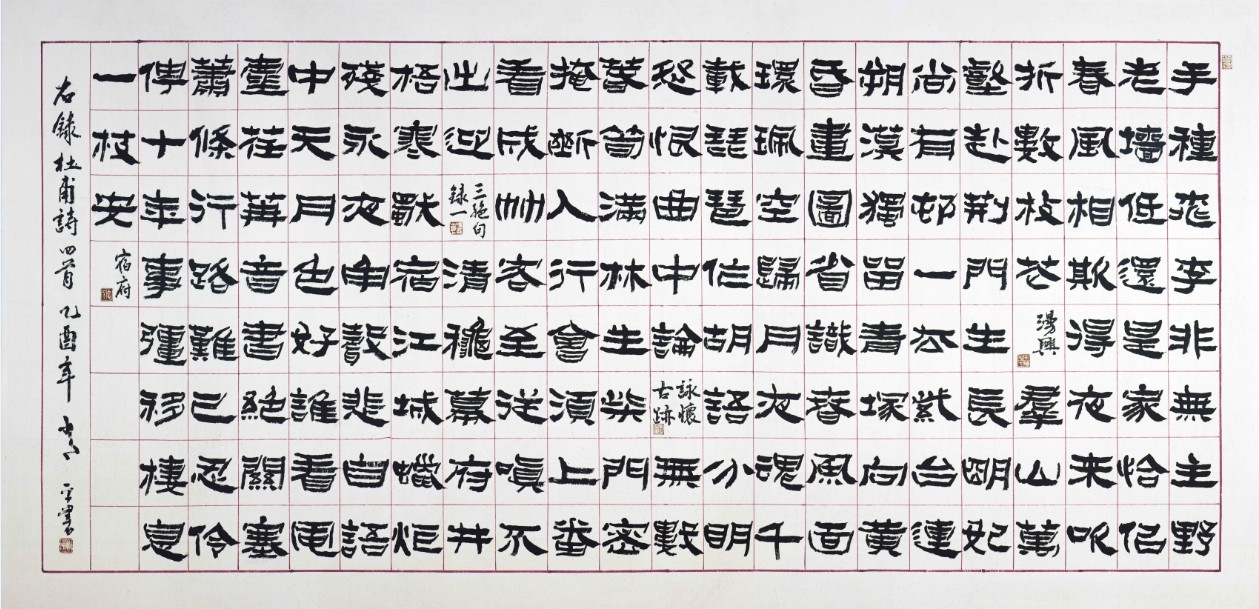 手種桃李非無主野
老墻低還是家恰似
春風相欺得夜來吹
折數枝花 漫興 羣山萬
壑赴荊門生長明妃
尚有邨一去紫臺連
朔漠獨留青塚向黃
昏畫圖省識春風面
環珮空歸月夜魂千
載琵琶作胡語分明
怨恨曲中論 詠懷古跡 無數
春筍滿林生柴門密
掩斷人行會須上番
看成竹客至從嗔不
出迎 三絕句錄一 清秋幕府井
梧寒獨宿江城蠟炬
殘永夜角聲悲自語
中天月色好誰看風
塵荏苒音書絕關塞
蕭條行路難已忍伶
俜十年事彊移棲息
一枝安 宿府
右錄杜甫詩四首 乙酉年